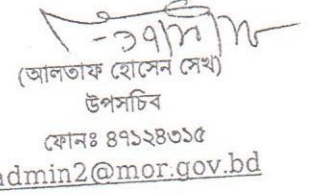 (আলতাফ হোসেন সেখ)
উপসচিব
ফোনঃ ৪৭১২৪৩১৫
admin2@mor.gov.bd